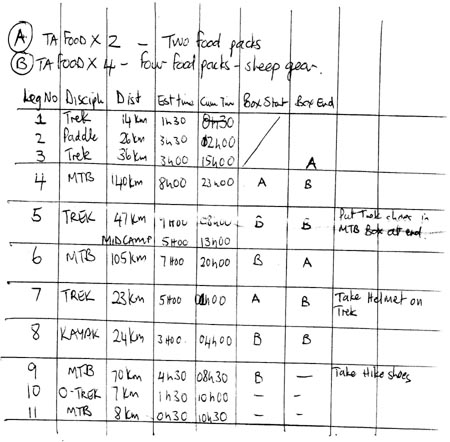 A TA FOOD X 2 - Two food packs
B TA FOOD X 4 - Four food packs - sheep gear.
Leg No Disciph Dist Est time Cum Time Box Start Box End
1 Trek 14km 1h30
2 Paddle 26km 3h30 12h00
3 Trek 36km 3h00 15h00 A
4 MTB 140km 8h00 23h00 A B
5 TREK 47km 7H00 B B Put Trek shoes in
MIDCAMP 5H00 13h00 MTB Box at end
6 MTB 105km 7H00 20h00 B A
7 TREK 23km 5H00 01h00 A B Take Helmet on
Trek
8 KAYAK 24km 3H00 04h00 B B
9 MTB 70km 4h30 08h30 B - Take Hike shoes
10 O-TREK 7km 1h30 10h00 - -
11 MTB 8km 0h30 10h30 - -